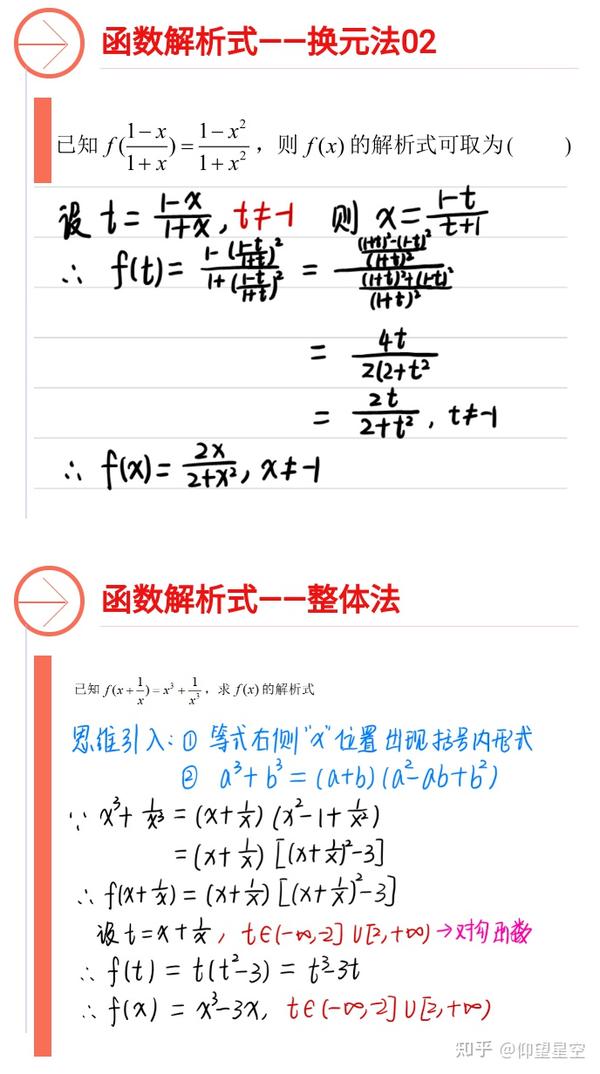 函数解析式——换元法02
已知 f((1-x)/(1+x)) = (1-x²)/(1+x²)，则 f(x) 的解析式可取为(  )
设 t = (1-x)/(1+x), t≠-1 则 x = (1-t)/(t+1)
∴ f(t) = (1-((1-t)/(1+t))²)/(1+((1-t)/(1+t))²) = (((1+t)²-(1-t)²)/(1+t)²)/(((1+t)²+(1-t)²)/(1+t)²)
= 4t/(2(2+t²
= 2t/(2+t²), t≠-1
∴ f(x) = 2x/(2+x²), x≠-1
函数解析式——整体法
已知 f(x+1/x) = x³+1/x³，求 f(x) 的解析式
思维引入: ① 等式右侧"x"位置出现括号内形式
② a³+b³ = (a+b)(a²-ab+b²)
∵ x³+1/x³ = (x+1/x)(x²-1+1/x²)
= (x+1/x)[(x+1/x)²-3]
∴ f(x+1/x) = (x+1/x)[(x+1/x)²-3]
设 t=x+1/x, t∈(-∞,-2]∪[2,+∞)→对勾函数
∴ f(t) = t(t²-3) = t³-3t
∴ f(x) = x³-3x, t∈(-∞,-2]∪[2,+∞)
知乎 @仰望星空